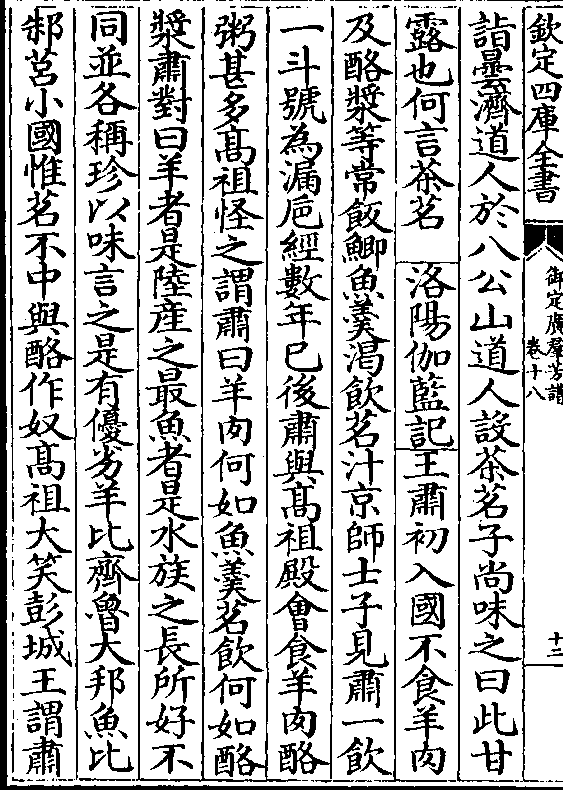 欽定四庫全書
御定廣羣芳譜
卷十八
十二
詣曇濟道人於八公山道人設茶茗子尚味之曰此甘
露也何言茶茗 洛陽伽藍記王肅初入國不食羊肉
及酪漿等常飯鯽魚羹渴飲茗汁京師士子見肅一飲
一斗號為漏巵經數年已後肅與髙祖殿會食羊肉酪
粥甚多髙祖怪之謂肅曰羊肉何如魚羹茗飲何如酪
漿肅對曰羊者是陸産之最魚者是水族之長所好不
同並各稱珍以味言之是有優劣羊比齊魯大邦魚比
邾莒小國惟茗不中與酪作奴髙祖大笑彭城王謂肅